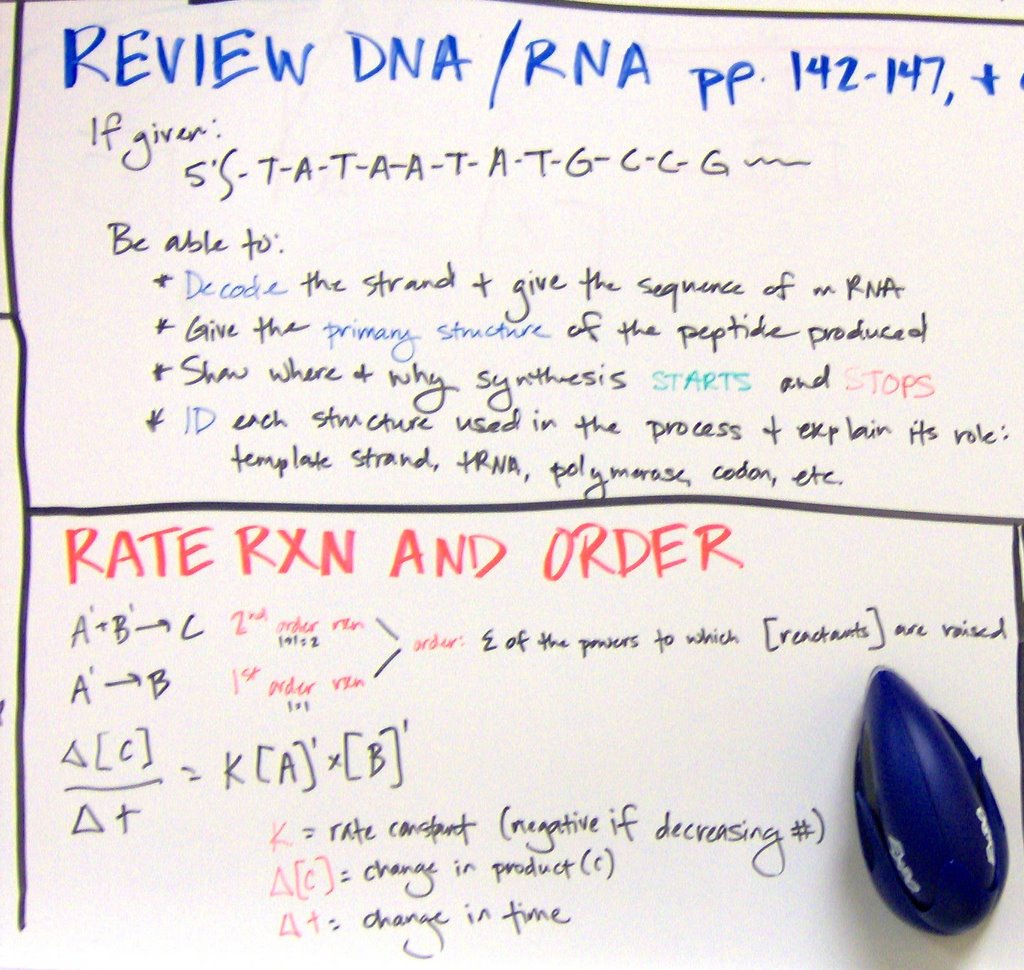 REVIEW DNA/RNA pp. 142-147, +
If given:
5'-T-A-T-A-A-T-A-T-G-C-C-G
Be able to:
* Decode the strand + give the sequence of mRNA
* Give the primary structure of the peptide produced
* Show where + why synthesis STARTS and STOPS
* ID each structure used in the process + explain its role:
template strand, tRNA, polymerase, codon, etc.
RATE RXN AND ORDER
A'+B'→C 2nd order rxn
1+1=2
order: Σ of the powers to which [reactants] are raised
A'→B 1st order rxn
1=1
Δ[C]/Δt = K[A]'×[B]'
K = rate constant (negative if decreasing #)
Δ[C] = change in product (c)
Δt = change in time